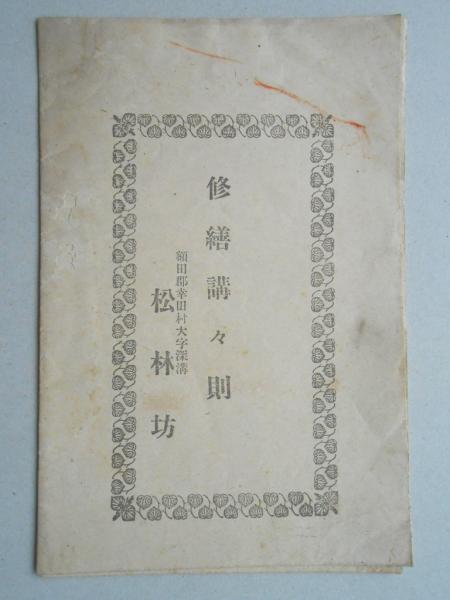 修繕講々則
額田郡幸田村大字深溝
松林坊